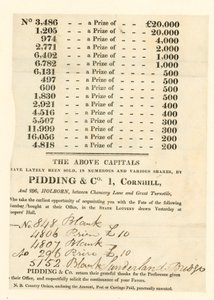 No 3,486 - a Prize of - £20,000
1,205 - a Prize of - 20,000
9,920 - a Prize of - 4,000
2,771 - a Prize of - 2,000
6,402 - a Prize of - 1,000
6,782 - a Prize of - 1,000
6,131 - a Prize of - 500
497 - a Prize of - 500
600 - a Prize of - 500
1,830 - a Prize of - 500
2,921 - a Prize of - 400
4,516 - a Prize of - 300
5,507 - a Prize of - 300
11,999 - a Prize of - 300
16,056 - a Prize of - 200
4,818 - a Prize of - 200
THE ABOVE CAPITALS
HAVE LATELY BEEN SOLD, IN NUMEROUS AND VARIOUS SHARES, BY
PIDDING & Co. 1, CORNHILL,
And 296, HOLBORN, between Chancery Lane and Great Turnstile,
Who take the earliest opportunity of acquainting you with the Fate of the following
bought at the Office, in the STATE LOTTERY drawn Yesterday at
Coopers' Hall.
No 848 Blank
4806 Prize £10
4807 Blank
No 296 Prize £10
5152 Blank
PIDDING & Co. return their grateful thanks for the Preference given
to their Office, and respectfully solicit the continuance of your Favors.
N. B. Country Orders, enclosing the Amount, Post or Carriage Paid, punctually executed.